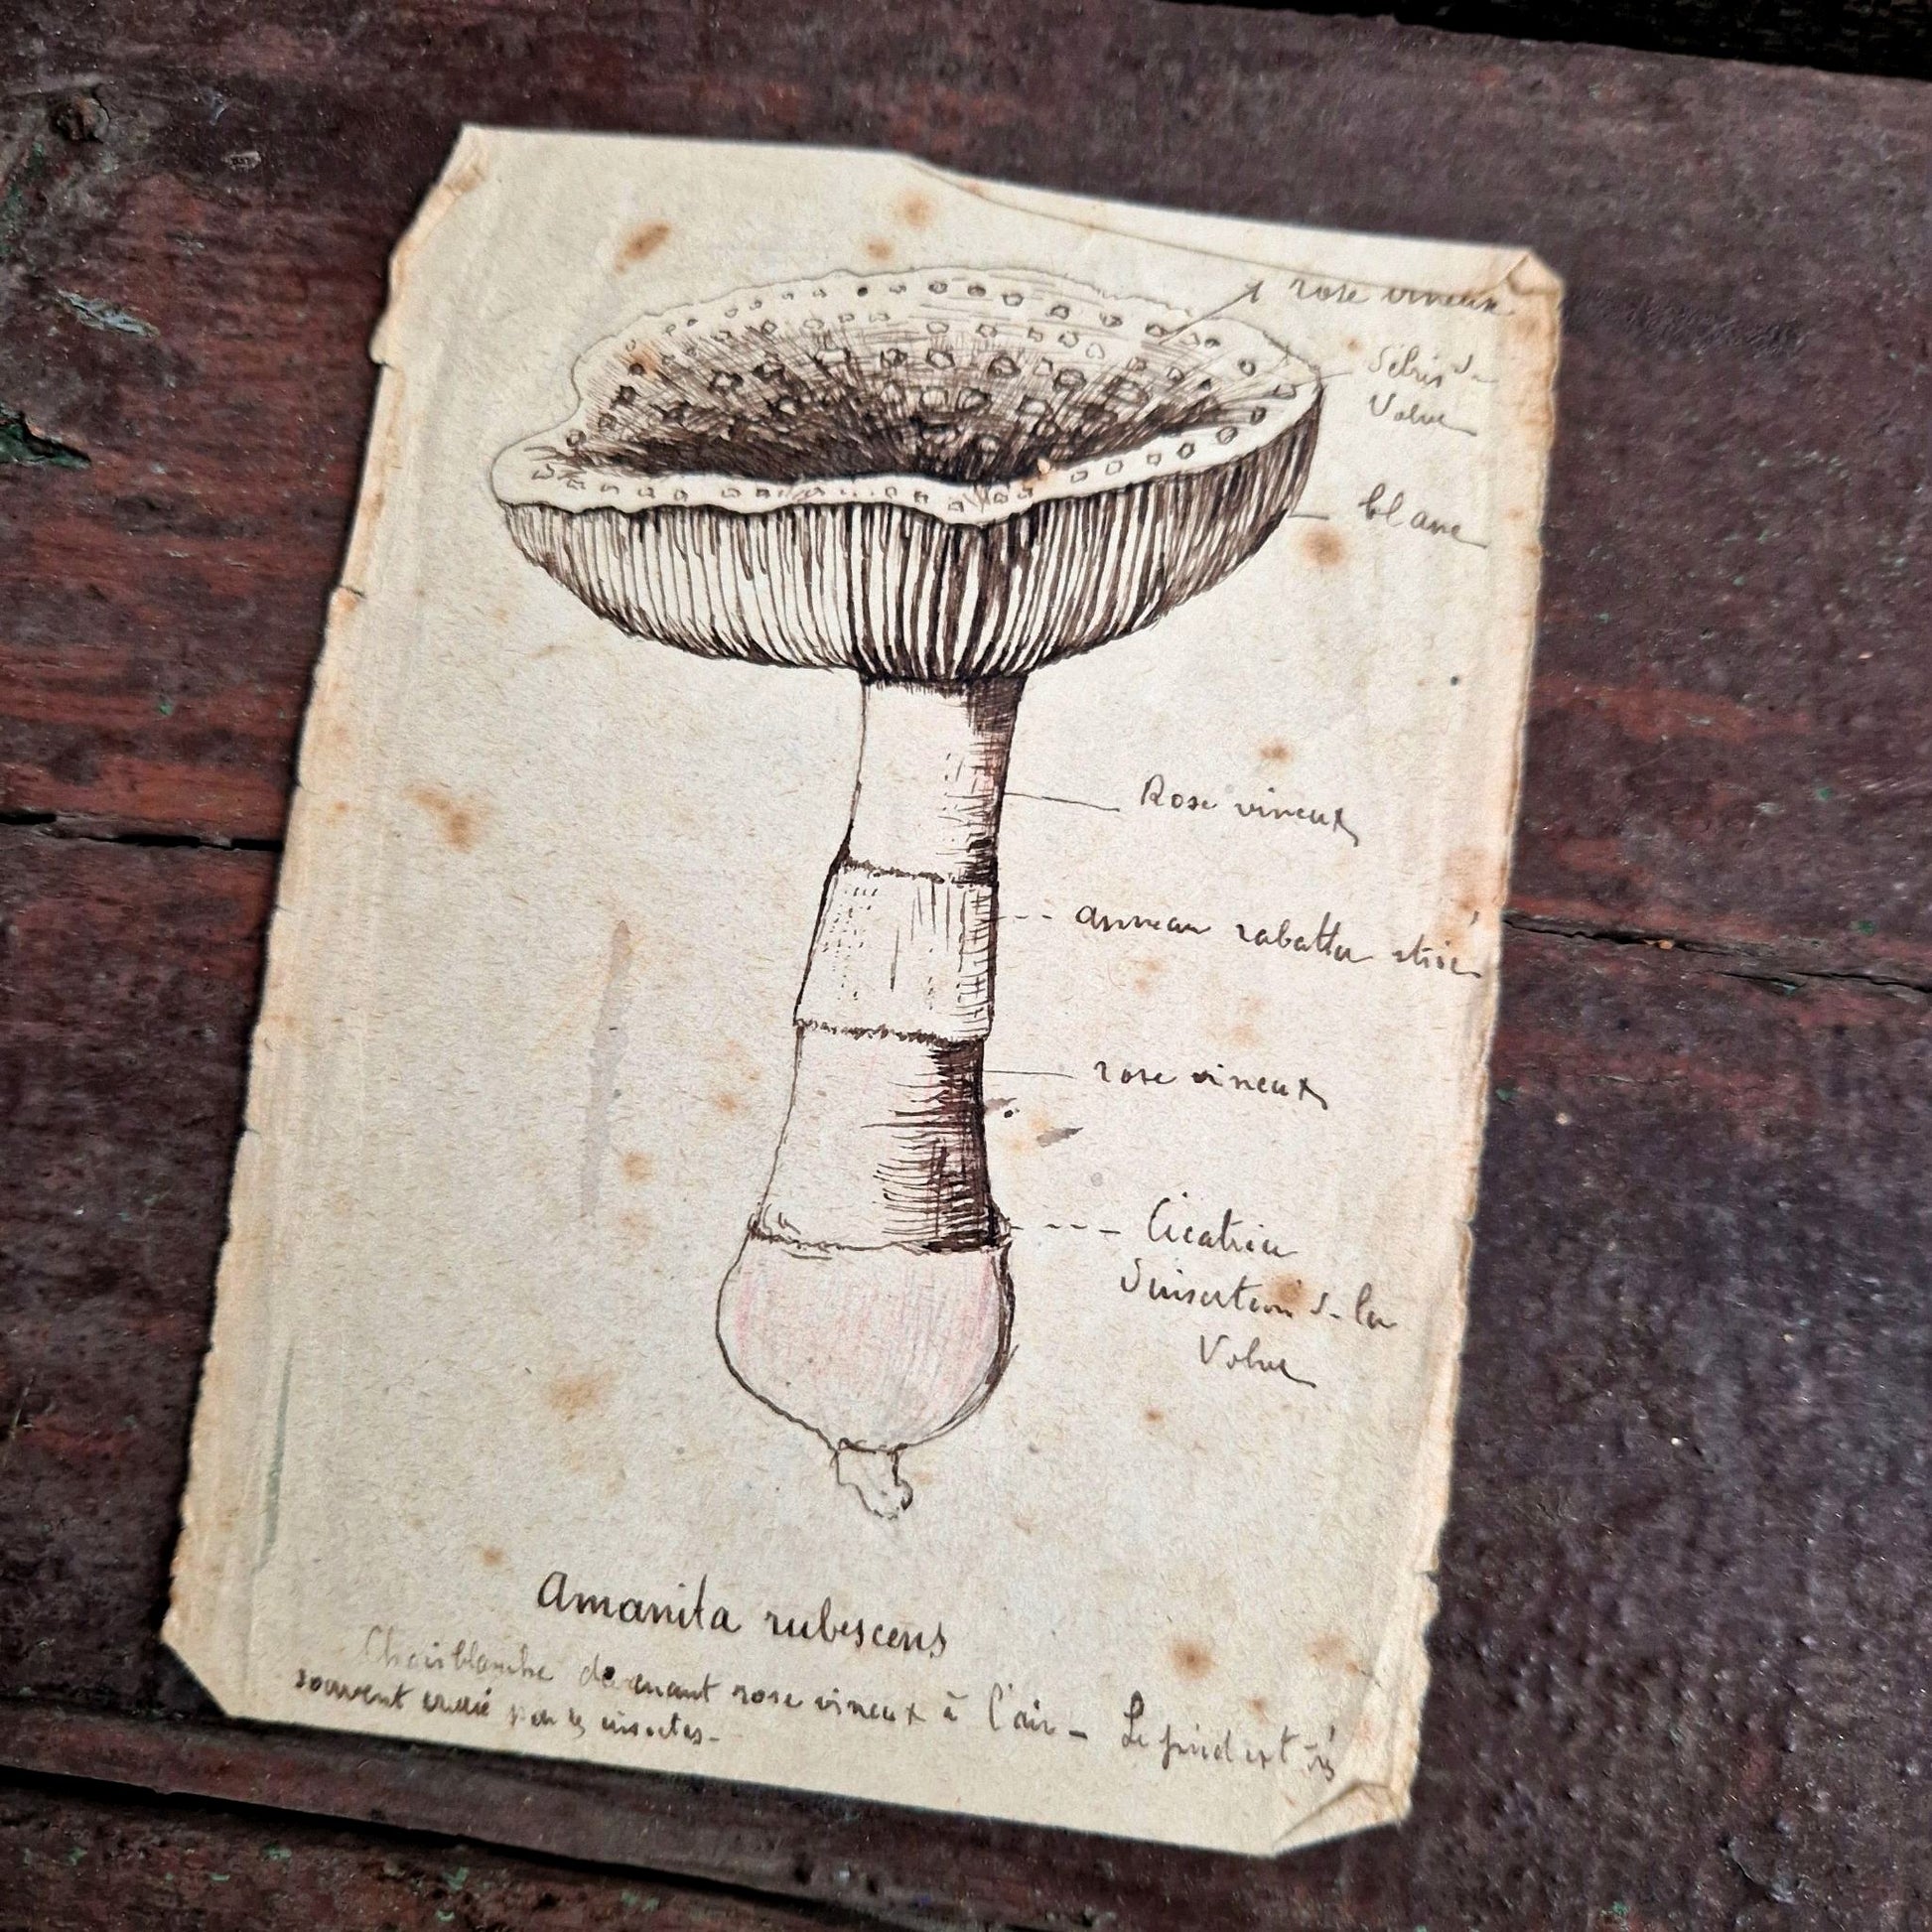 rose vineux
débris de
Volve
blanc
Rose vineux
anneau rabattu strié
rose vineux
Cicatrice
d'insertion de la
Volve
Amanita rubescens
Chair blanche devenant rose vineux à l'air - Le pied est très
souvent érodé par les insectes -